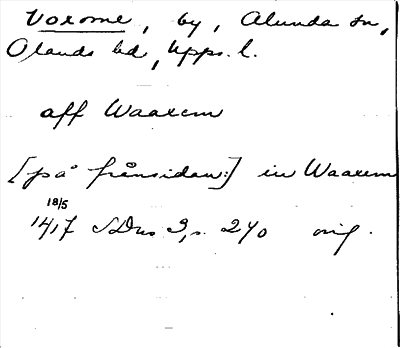 Vorome, by, Alunda sn,
Olands hd, Upps. l.
aff Waarem
[på frånsidan:] in Waarem
18/5
1417 SDns 3, s. 270 orig.